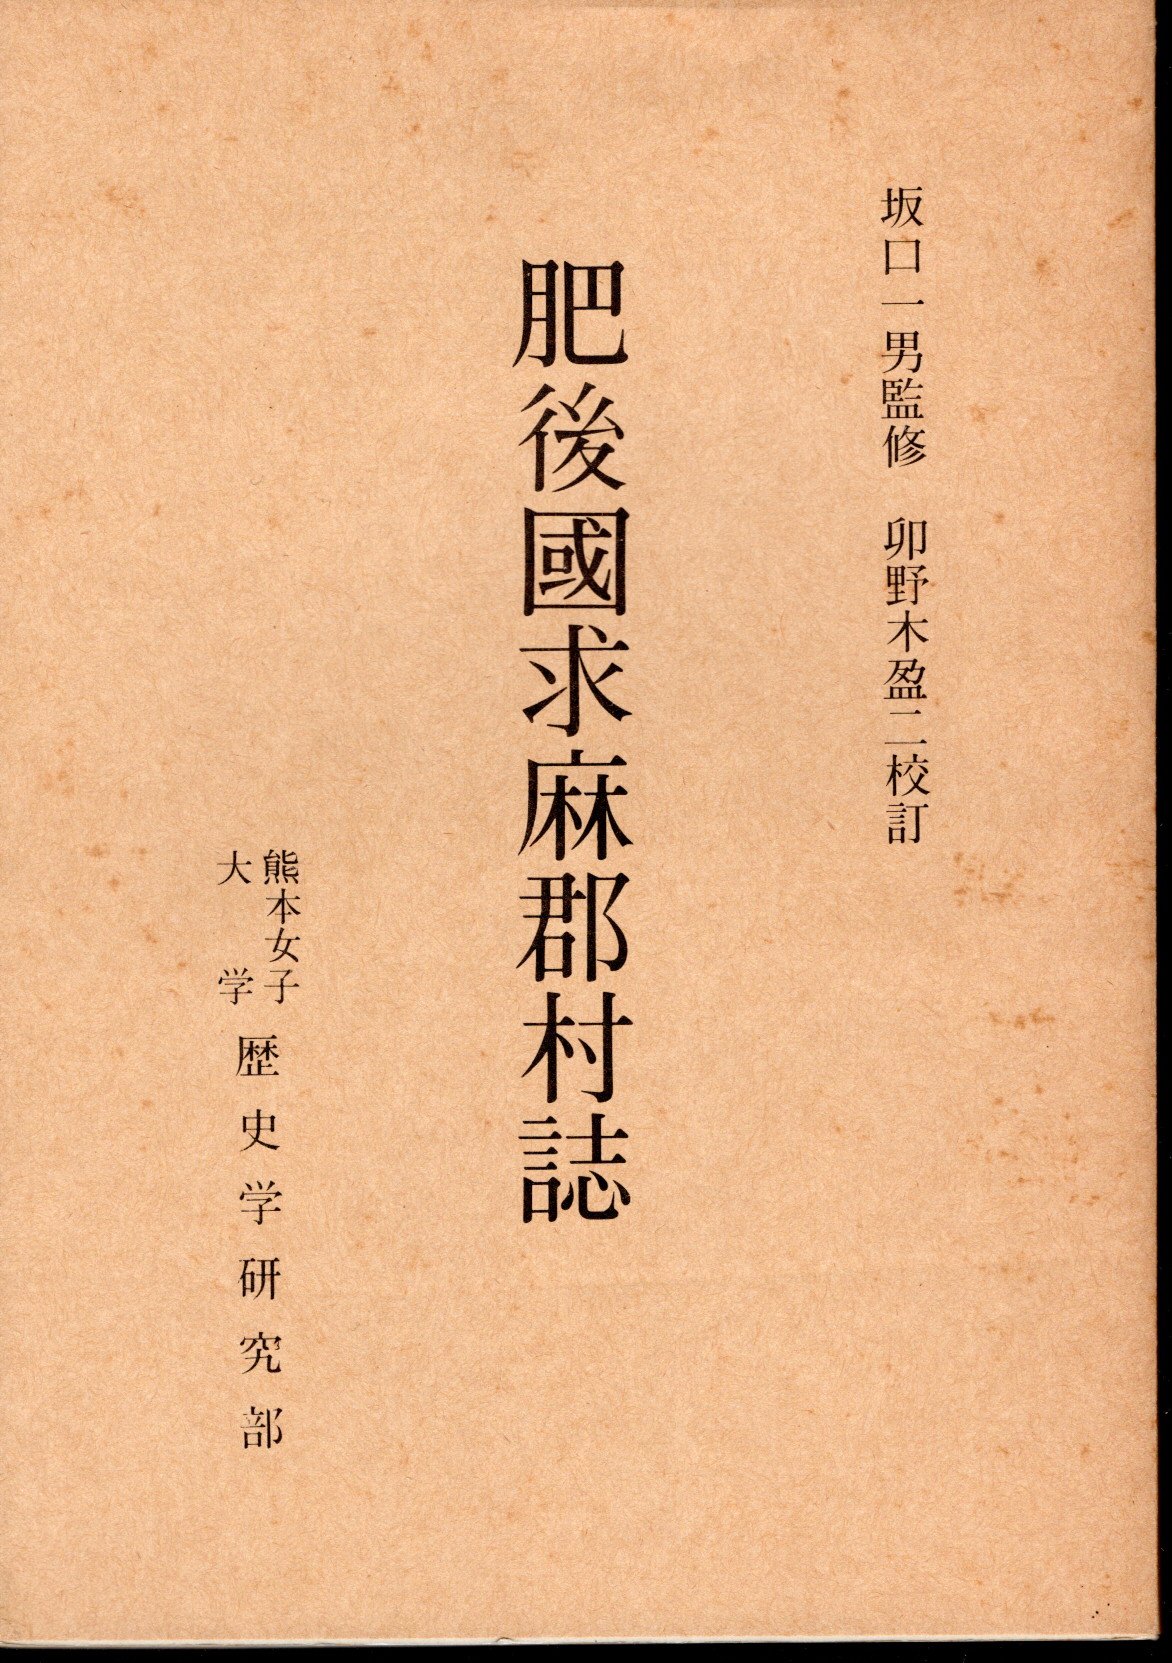 坂口一男監修　卯野木盈二校訂
肥後國求麻郡村誌
熊本女子
大学
歴史学研究部